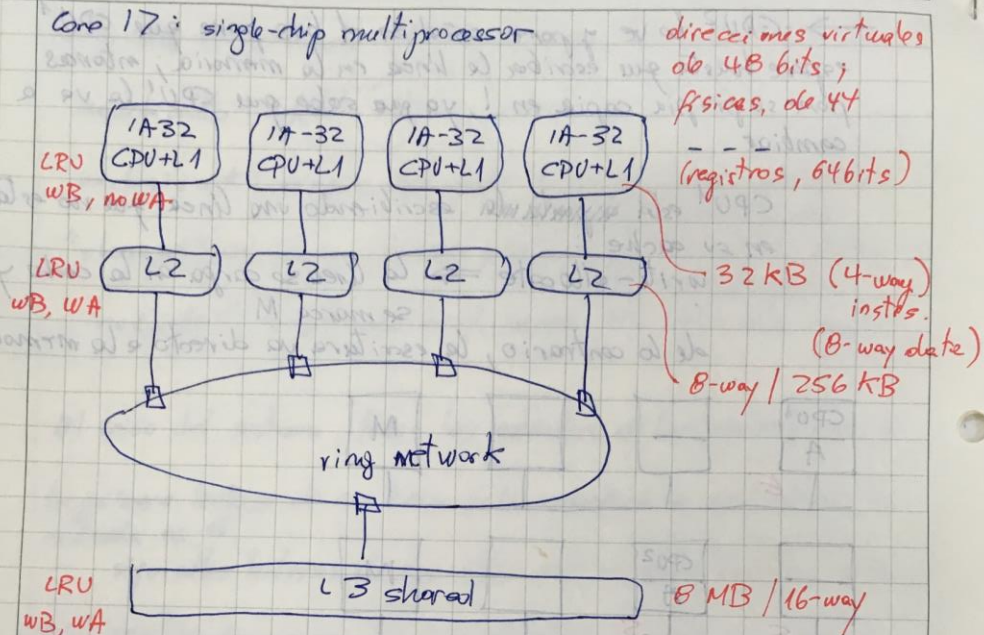 Core i7: single-chip multiprocessor
direcciones virtuales
de 48 bits;
físicas, de 44
- - -
(registros, 64bits)
IA-32
CPU+L1
IA-32
CPU+L1
IA-32
CPU+L1
IA-32
CPU+L1
LRU
WB, no WA
LRU
WB, WA
L2
L2
L2
L2
32 KB (4-way)
insts.
(8-way data)
8-way / 256 KB
ring network
LRU
WB, WA
L3 shared
8 MB / 16-way